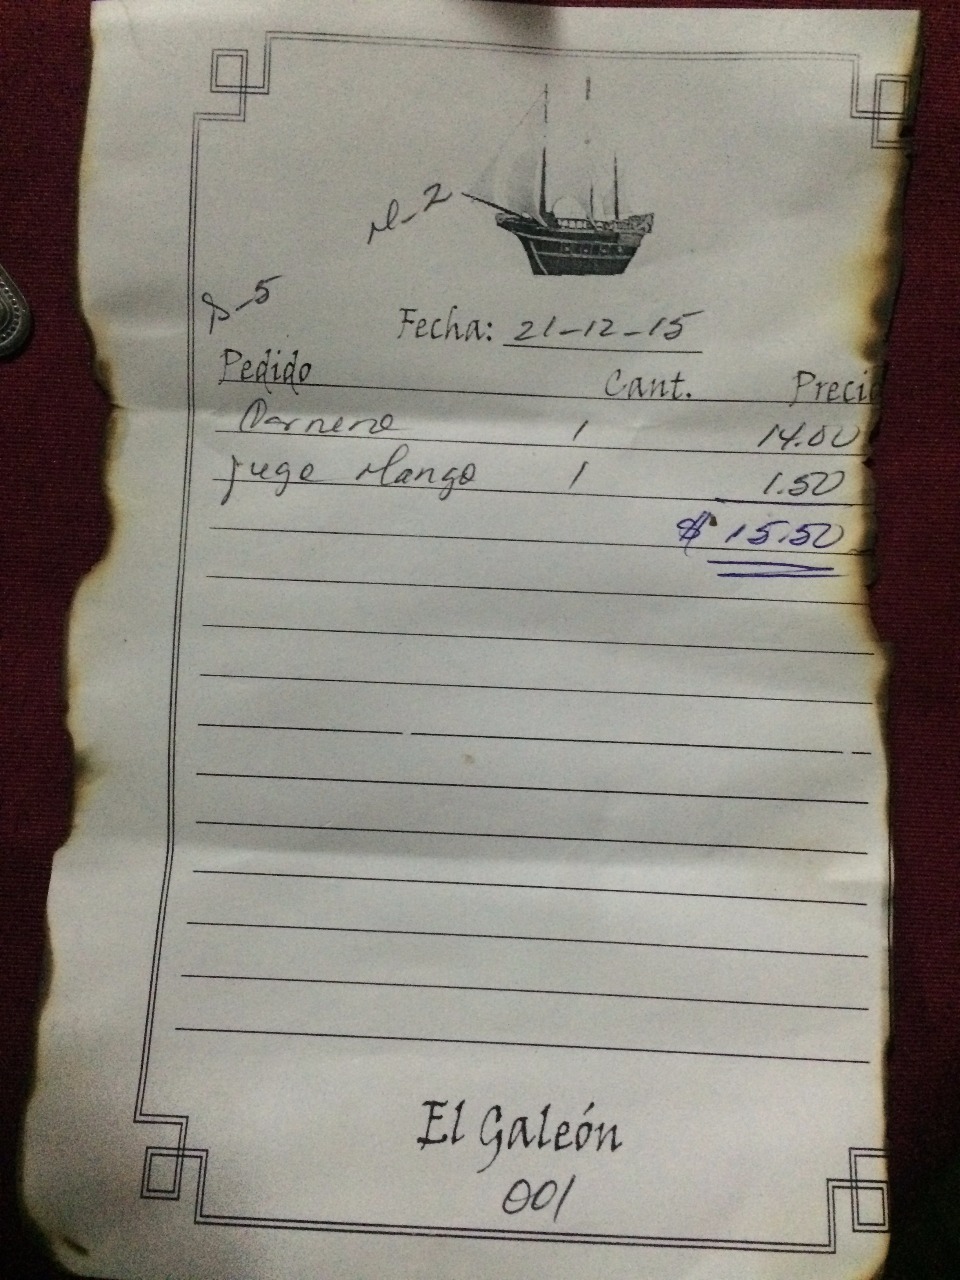 M-2
P-5
Fecha: 21-12-15
Pedido Cant. Precio
Carnero 1 14.00
Jugo Mango 1 1.50
$ 15.50
El Galeón
001